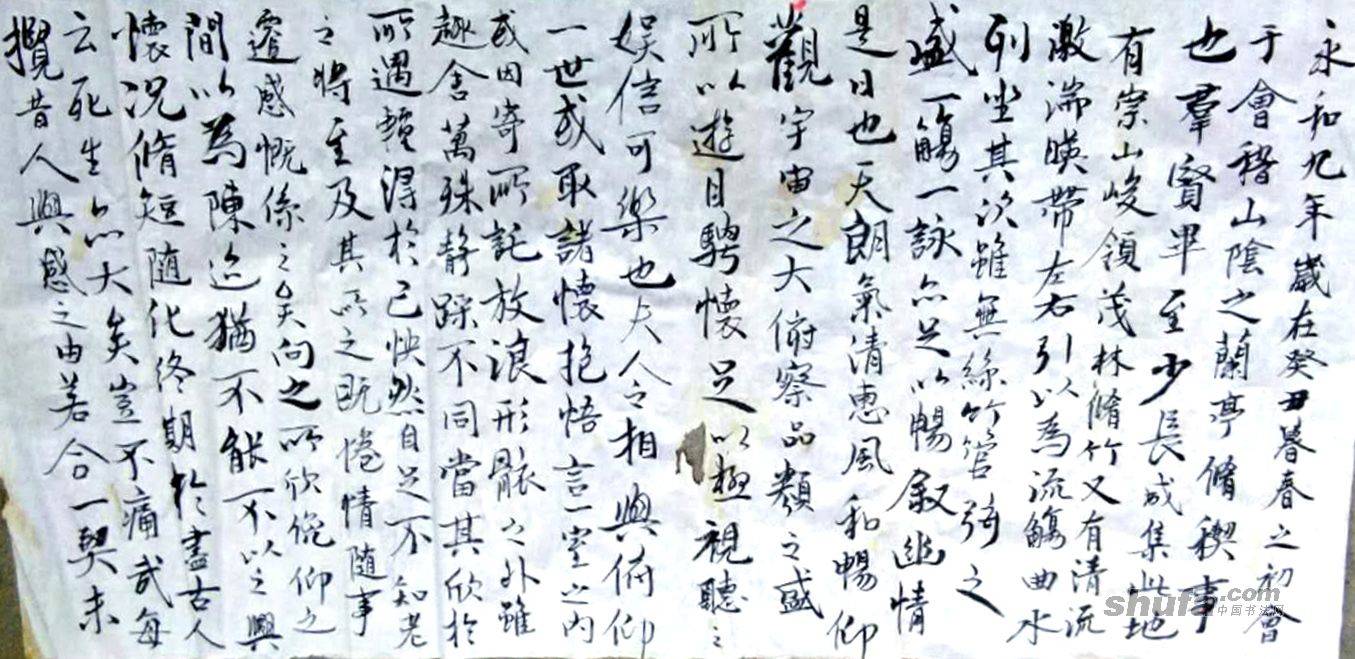 永和九年歲在癸丑暮春之初會
于會稽山陰之蘭亭脩稧事
也羣賢畢至少長咸集此地
有崇山峻領茂林脩竹又有清流
激湍暎帶左右引以為流觴曲水
列坐其次雖無絲竹管弦之
盛一觴一詠亦足以暢叙幽情
是日也天朗氣清惠風和暢仰
觀宇宙之大俯察品類之盛
所以遊目騁懷足以極視聽之
娛信可樂也夫人之相與俯仰
一世或取諸懷抱悟言一室之內
或因寄所託放浪形骸之外雖
趣舍萬殊静躁不同當其欣於
所遇蹔得於己怏然自足不知老
之將至及其所之既惓情隨事
遷感慨係之矣向之所欣俛仰之
間以為陳迹猶不能不以之興
懷況脩短隨化終期於盡古人
云死生亦大矣豈不痛哉每
攬昔人興感之由若合一契未
shufa.com
中国书法网